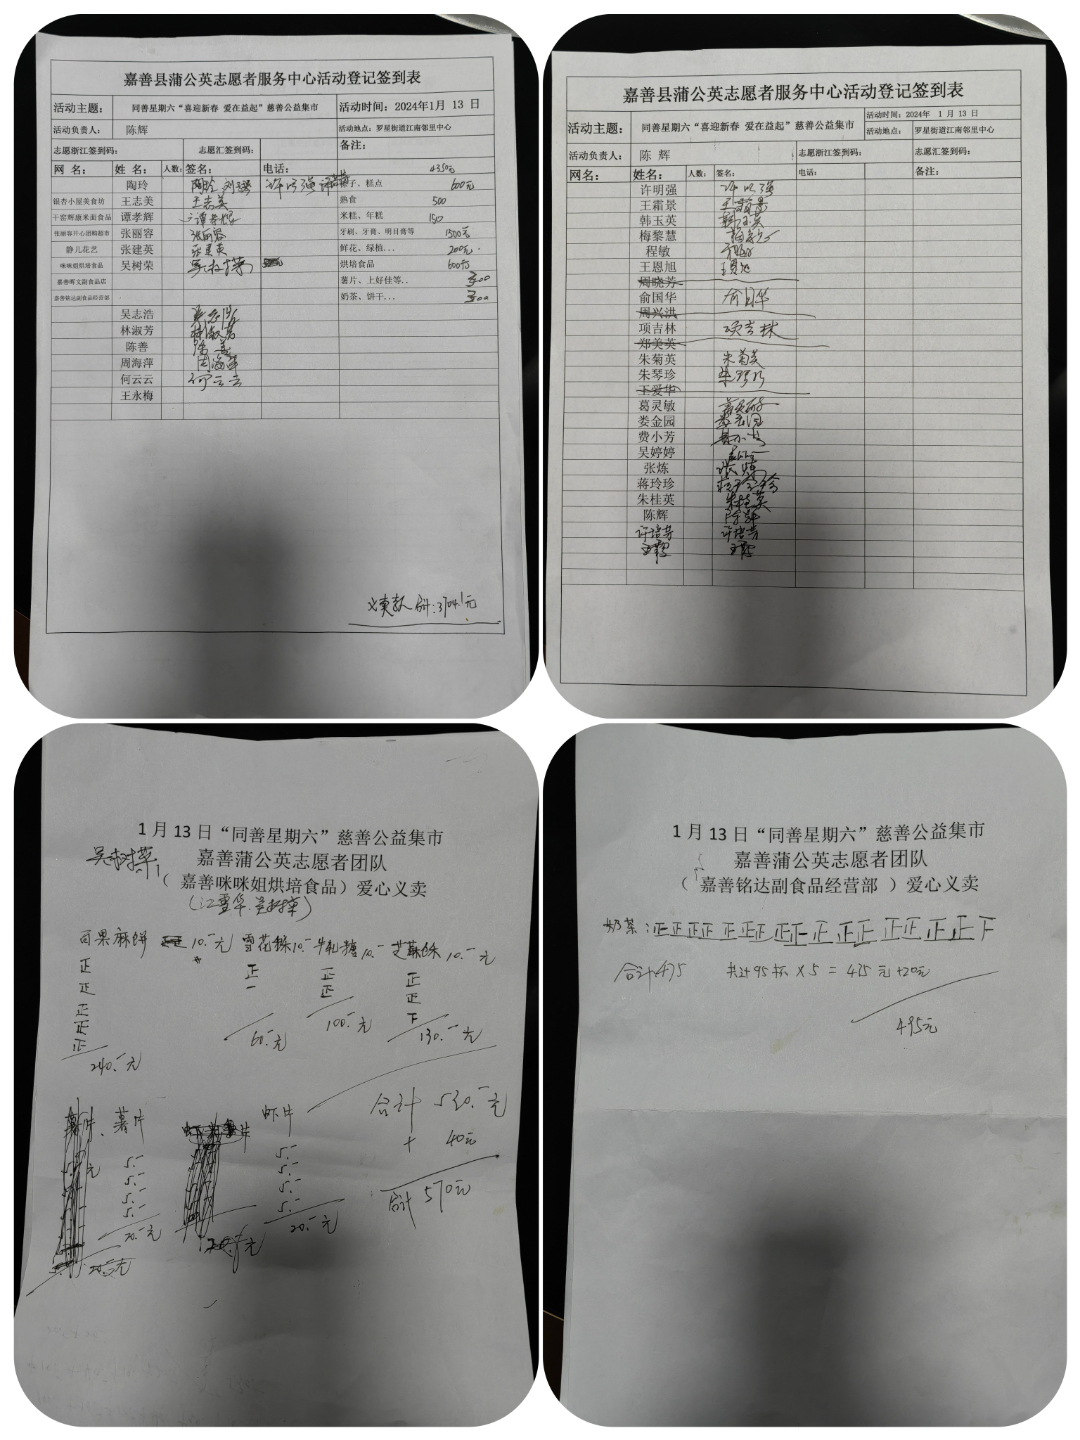 嘉善县蒲公英志愿者服务中心活动登记签到表
活动主题： 同善星期六“喜迎新春 爱在益起”慈善公益集市 活动时间：2024年1月 13 日
活动负责人： 陈辉 活动地点：罗星街道江南邻里中心
志愿浙江签到码： 志愿汇签到码： 备注：
网 名： 姓 名： 人数： 签名： 电话： 4350元
陶玲 陶玲 许明强 子、糕点 600元
银杏小屋美食坊 王志美 王志美 熟食 500
干窑辉康米面食品 谭孝辉 谭孝辉 米糕、年糕 150
张丽容开心团购超市 张丽容 张丽容 牙刷、牙膏、明目膏等 1500元
静儿花艺 张建英 张建英 鲜花、绿植... 200元
咪咪姐烘培食品 吴树荣 吴树荣 烘培食品 600元
嘉善晖文副食品店 薯片、上好佳等.. 300
嘉善铭达副食品经营部 奶茶、饼干... 300
吴志浩 吴志浩
林淑芳 林淑芳
陈善 陈善
周海萍 周海萍
何云云 何云云
王永梅
义卖款合计:3704.1元
嘉善县蒲公英志愿者服务中心活动登记签到表
活动主题： 同善星期六“喜迎新春 爱在益起”慈善公益集市 活动时间：2024年 1 月 13 日
活动地点： 罗星街道江南邻里中心
活动负责人： 陈 辉 志愿浙江签到码： 志愿汇签到码：
网名： 姓名： 人数： 签名： 电话： 备注：
许明强 许明强
王霜景 王霜景
韩玉英 韩玉英
梅黎慧
程敏 程敏
王恩旭 王恩旭
周晓芳
俞国华 俞国华
周兴洪
项吉林 项吉林
郑美英
朱菊英 朱菊英
朱琴珍 朱琴珍
王爱华
葛灵敏 葛灵敏
娄金园 娄金园
费小芳 费小芳
吴婷婷
张炼 张炼
蒋玲珍 蒋玲珍
朱桂英 朱桂英
陈辉 陈辉
许培芳 许培芳
王霞 王霞
1 月 13 日“同善星期六”慈善公益集市
吴树荣 嘉善蒲公英志愿者团队
（ 嘉善咪咪姐烘培食品）爱心义卖
百果麻饼 10.-元 雪花酥10.- 牛轧糖10.- 芝麻酥10.-元
正 正 正 正
正 一 正 正
正 正
正 下
正
正
240.-元 60.-元 100.-元 130.-元
合计 530.-元
+ 40元
合计 570元
薯片 虾片
5.- 5.-
5.- 5.-
5.- 5.-
5.- 5.-
20.-元 20.-元
1 月 13 日“同善星期六”慈善公益集市
嘉善蒲公英志愿者团队
（ 嘉善铭达副食品经营部 ）爱心义卖
奶茶：正正正正正正正正正正正正正正正正正正下
合计475 共计95杯 X 5 = 475 元 +20元
495元